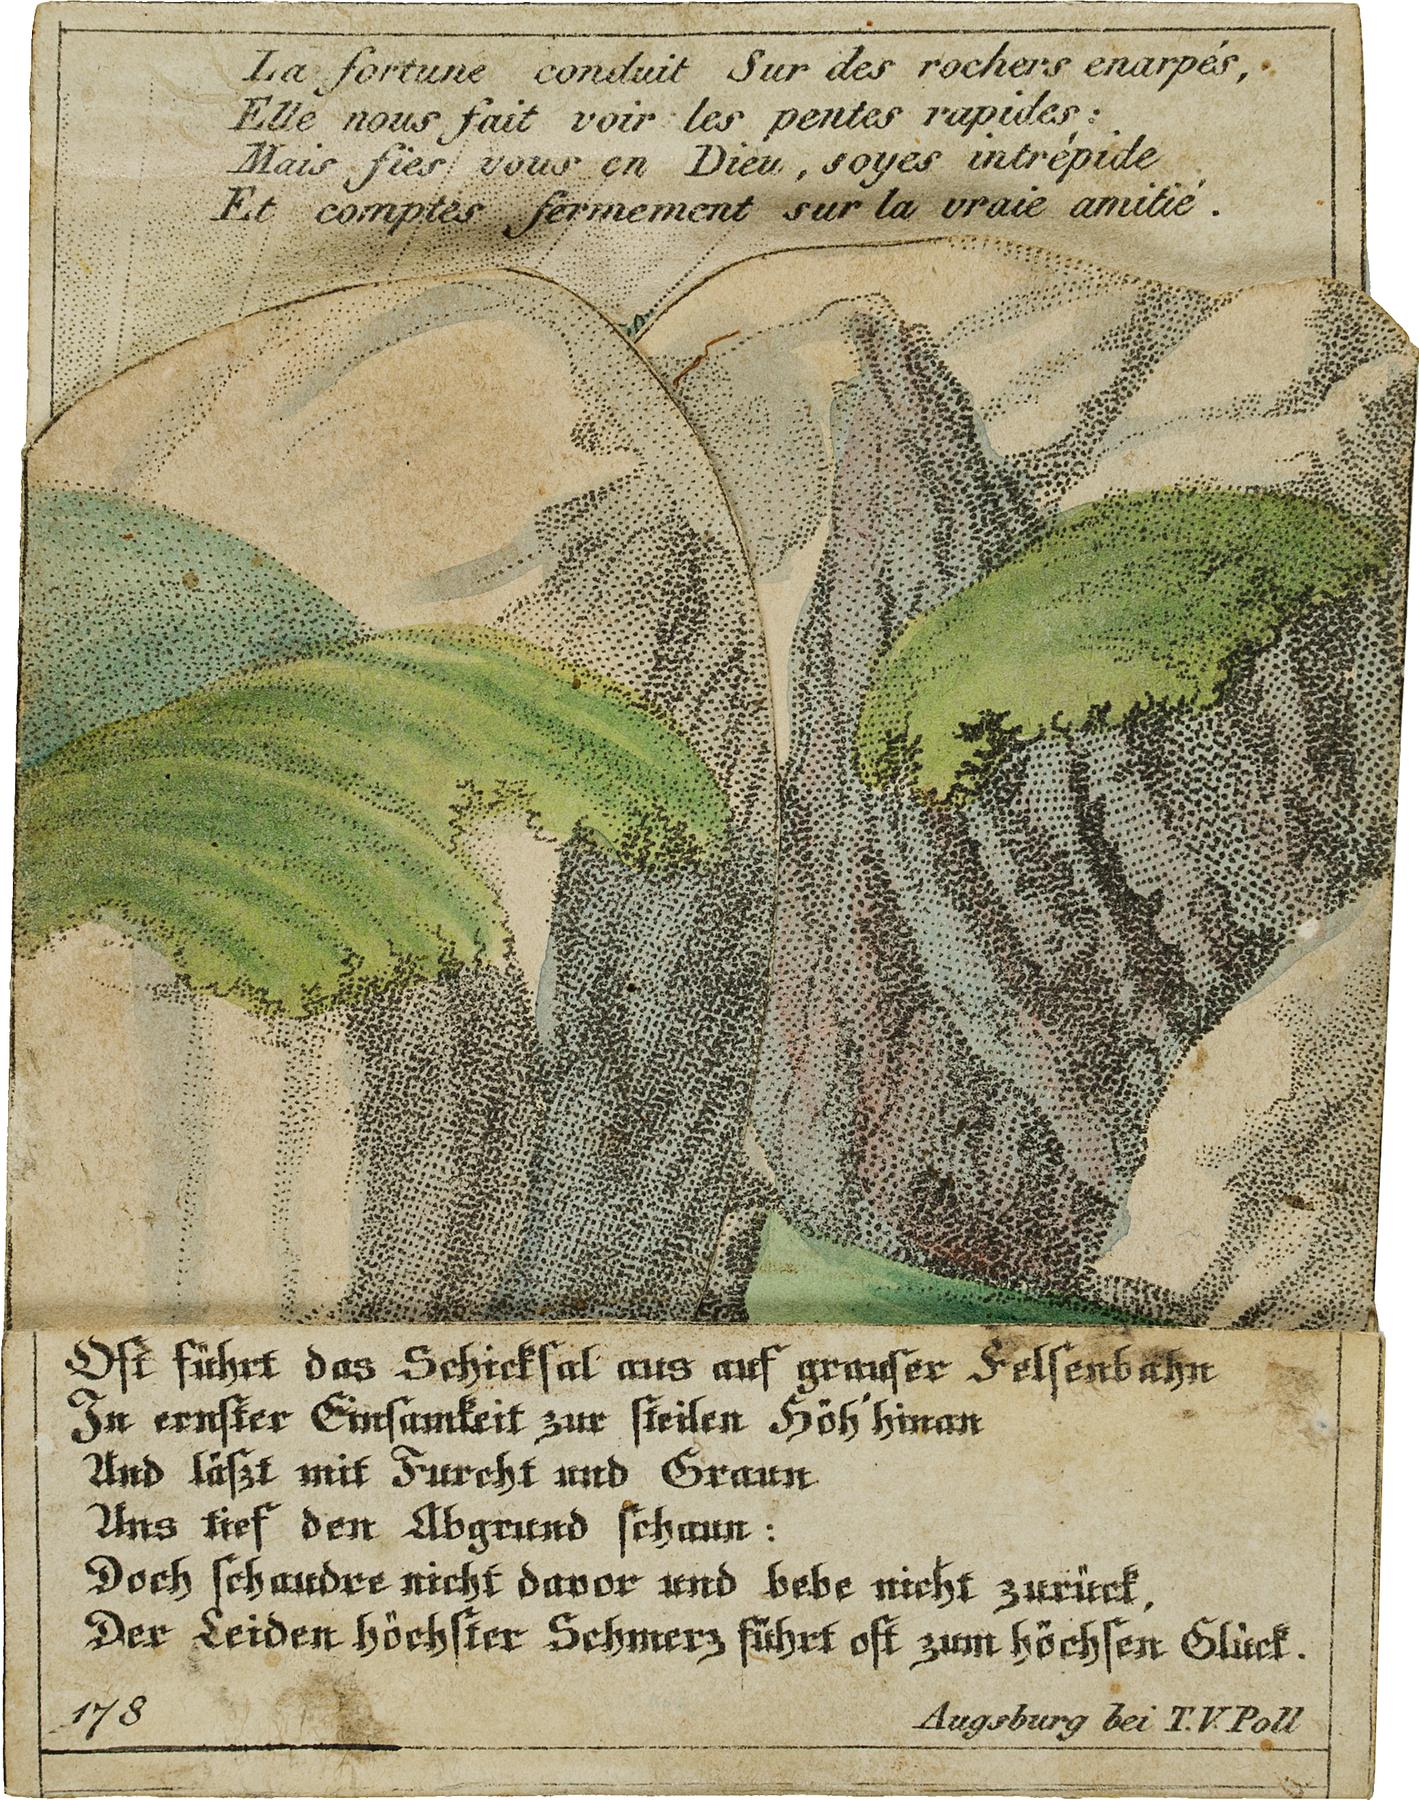 La fortune conduit Sur des rochers enarpés,
Elle nous fait voir les pentes rapides:
Mais fies vous en Dieu, soyes intrépide
Et comptes fermement sur la vraie amitié.
Oft führt das Schicksal aus auf grauser Felsenbahn
In ernster Einsamkeit zur steilen Höh' hinan
Und läszt mit Furcht und Graun
Uns tief den Abgrund schaun:
Doch schaudre nicht davor und bebe nicht zurück,
Der Leiden höchster Schmerz führt oft zum höchsen Glück.
178
Augsburg bei T.V. Poll